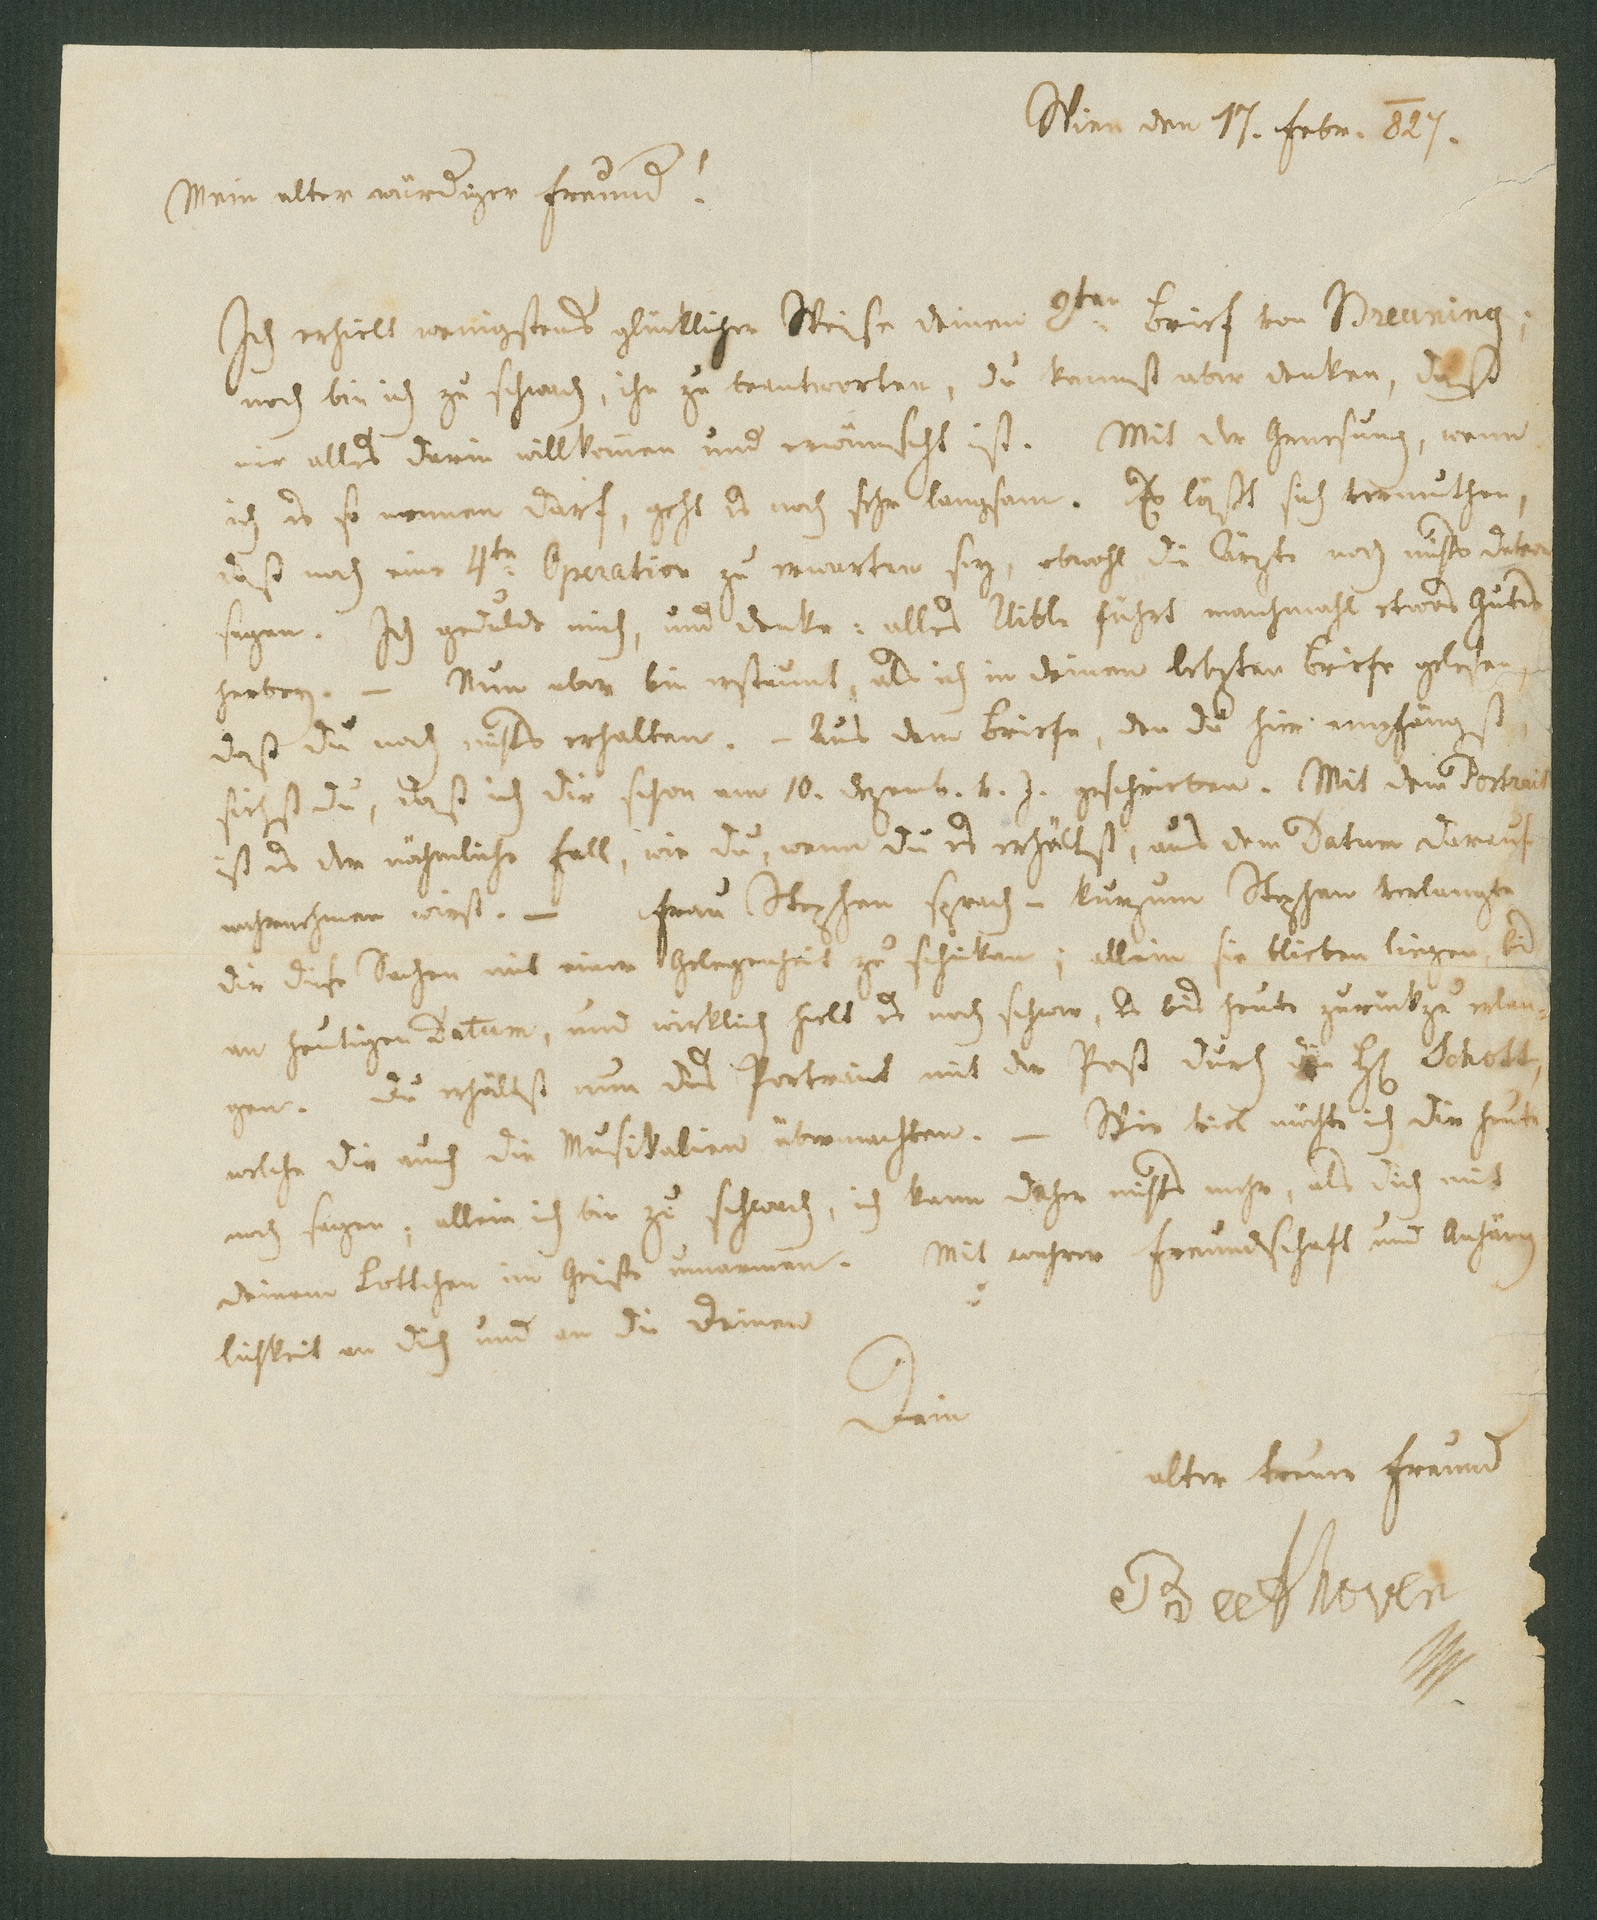 Wien den 17. Febr. 827.
Mein alter würdiger Freund!
Ich erhielt wenigstens glücklicher Weise deinen 2ten Brief von Breuning;
noch bin ich zu schwach, ihn zu beantworten, du kannst aber denken, daß
mir alles darin willkommen und erwünscht ist. Mit der Genesung, wenn
ich es so nennen darf, geht es noch sehr langsam. Es läßt sich vermuthen,
daß noch eine 4te Operation zu erwarten sey, obwohl die Ärzte noch nichts davon
sagen. Ich gedulde mich, und denke: alles Üible führt manchmahl etwas Gutes
herbey. — Nun aber bin erstaunt, als ich in deinem letzten Briefe gelesen,
daß du noch nichts erhalten. – Aus dem Briefe, den du hier empfängst,
siehst du, daß ich dir schon am 10. Dezemb. v. J. geschrieben. Mit dem Portrait
ist es der nähmliche Fall, wie du, wenn du es erhältst, aus dem Datum darauf
wahrnehmen wirst. — Frau Stephen sprach – kurzum Stephen verlangte
dir diese Sachen mit einer Gelegenheit zu schicken; allein sie blieben liegen, bis
an heutigen Datum, und wirklich hielt es noch schwer, es bis heute zurückzuerlan¬
gen. Du erhältst nun das Portrait mit der Post durch die H. Schott,
welche dir auch die Musikalien übermachten. — Wie viel möchte ich dir heute
noch sagen; allein ich bin zu schwach, ich kann daher nichts mehr, als dich mit
deinem Lottchen im Geiste umarmen. Mit wahrer Freundschaft und Anhäng
lichkeit an dich und an die Deinen
Dein
alter treuer Freund
Beethoven